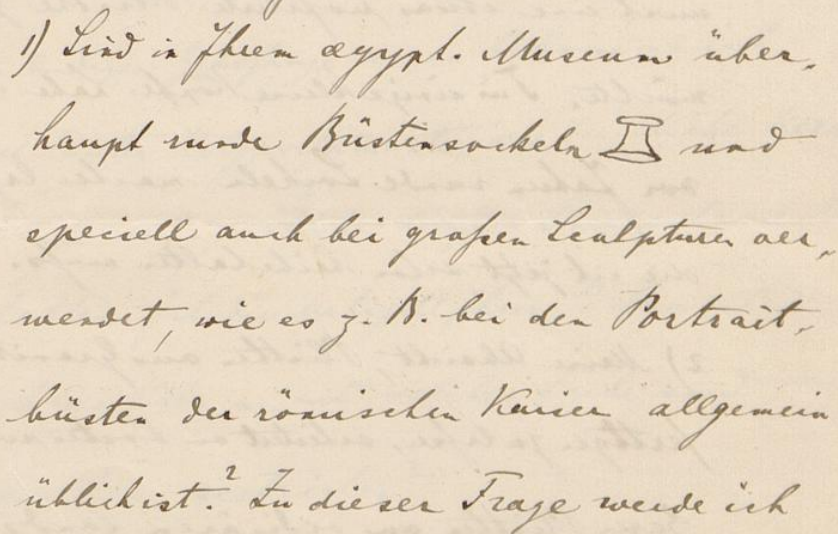 1) Sind in Ihrem ægypt. Museum über-
haupt runde Büstensockeln und
speciell auch bei großen Sculpturen ver-
wendet, wie es z. B. bei den Portrait-
büsten der römischen Kaiser allgemein
üblich ist.? Zu dieser Frage werde ich